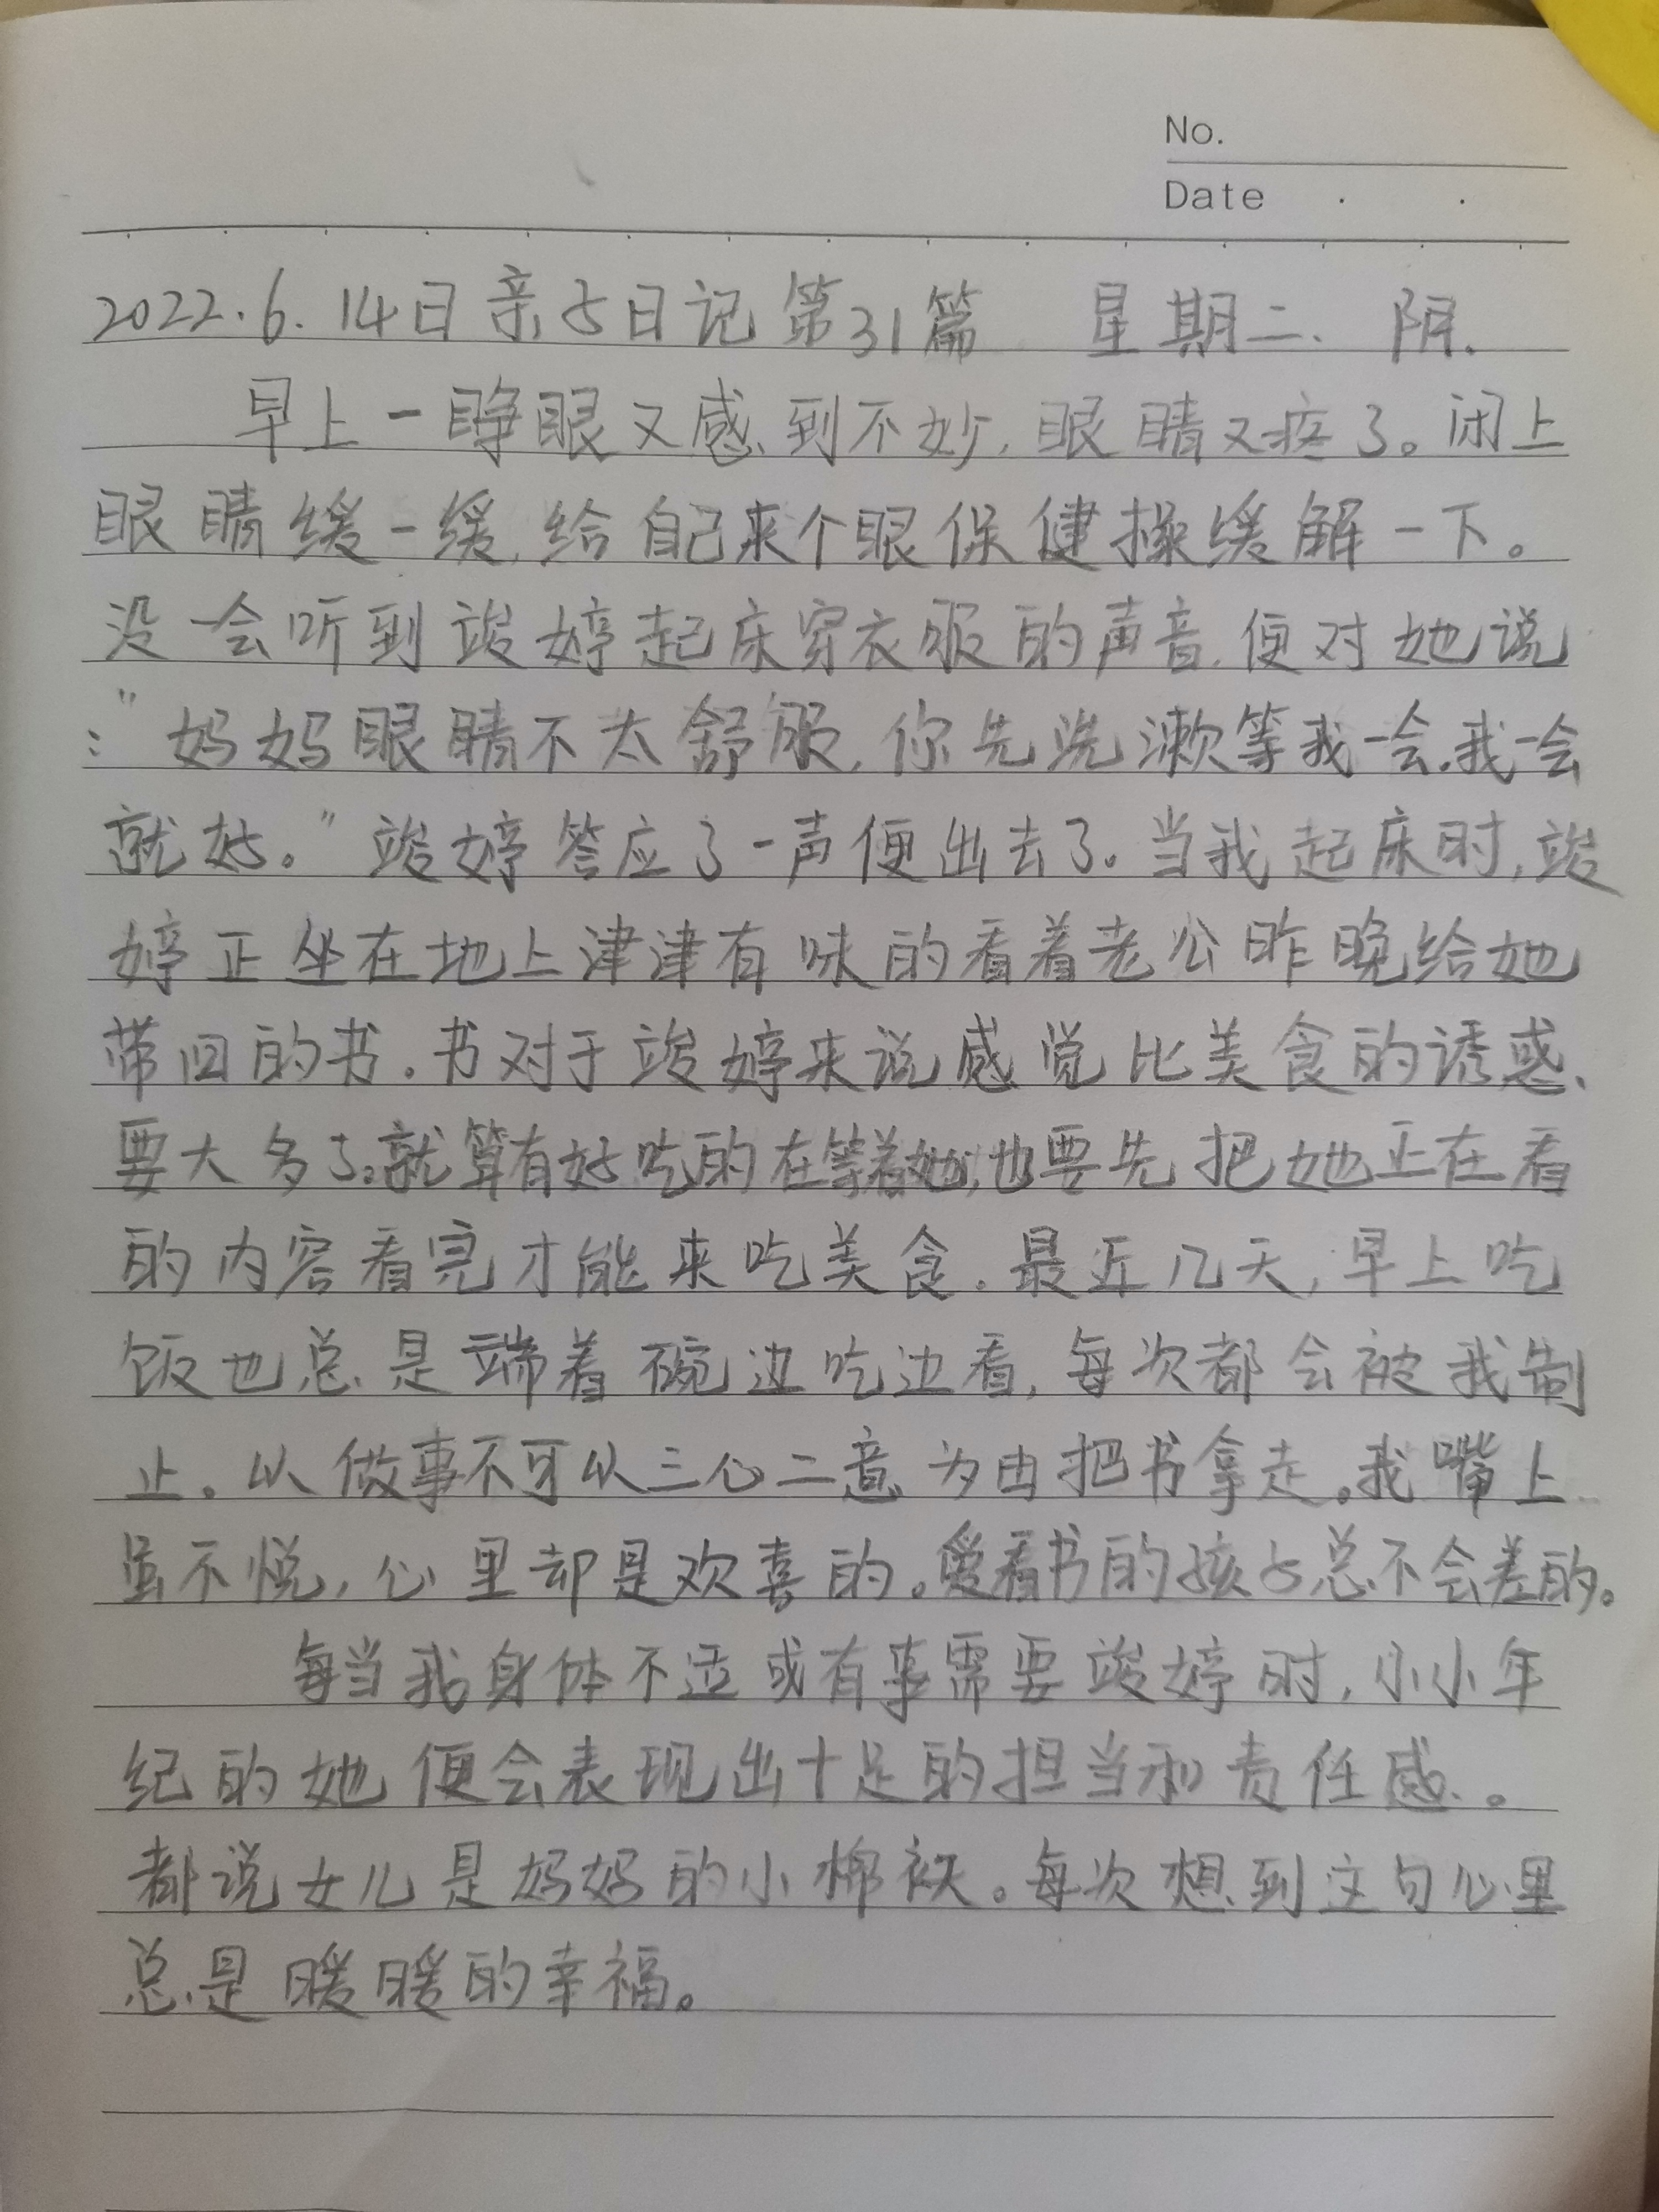 No.
Date
2022.6.14日亲子日记第31篇 星期二. 阴.
早上一睁眼又感到不妙,眼睛又疼了。闭上
眼睛缓一缓,给自己来个眼保健操缓解一下。
没一会听到竣婷起床穿衣服的声音,便对她说
:"妈妈眼睛不太舒服,你先洗漱等我一会.我一会
就好。"竣婷答应了一声便出去了。当我起床时,竣
婷正坐在地上津津有味的看着老公昨晚给她
带回的书.书对于竣婷来说感觉比美食的诱惑
要大多了.就算有好吃的在等着她,也要先把她正在看
的内容看完才能来吃美食.最近几天,早上吃
饭也总是端着碗边吃边看,每次都会被我制
止。以做事不可以三心二意为由把书拿走。我嘴上
虽不悦,心里却是欢喜的。爱看书的孩子总不会差的。
每当我身体不适或有事需要竣婷时,小小年
纪的她便会表现出十足的担当和责任感.。
都说女儿是妈妈的小棉袄。每次想到这句心里
总是暖暖的幸福。